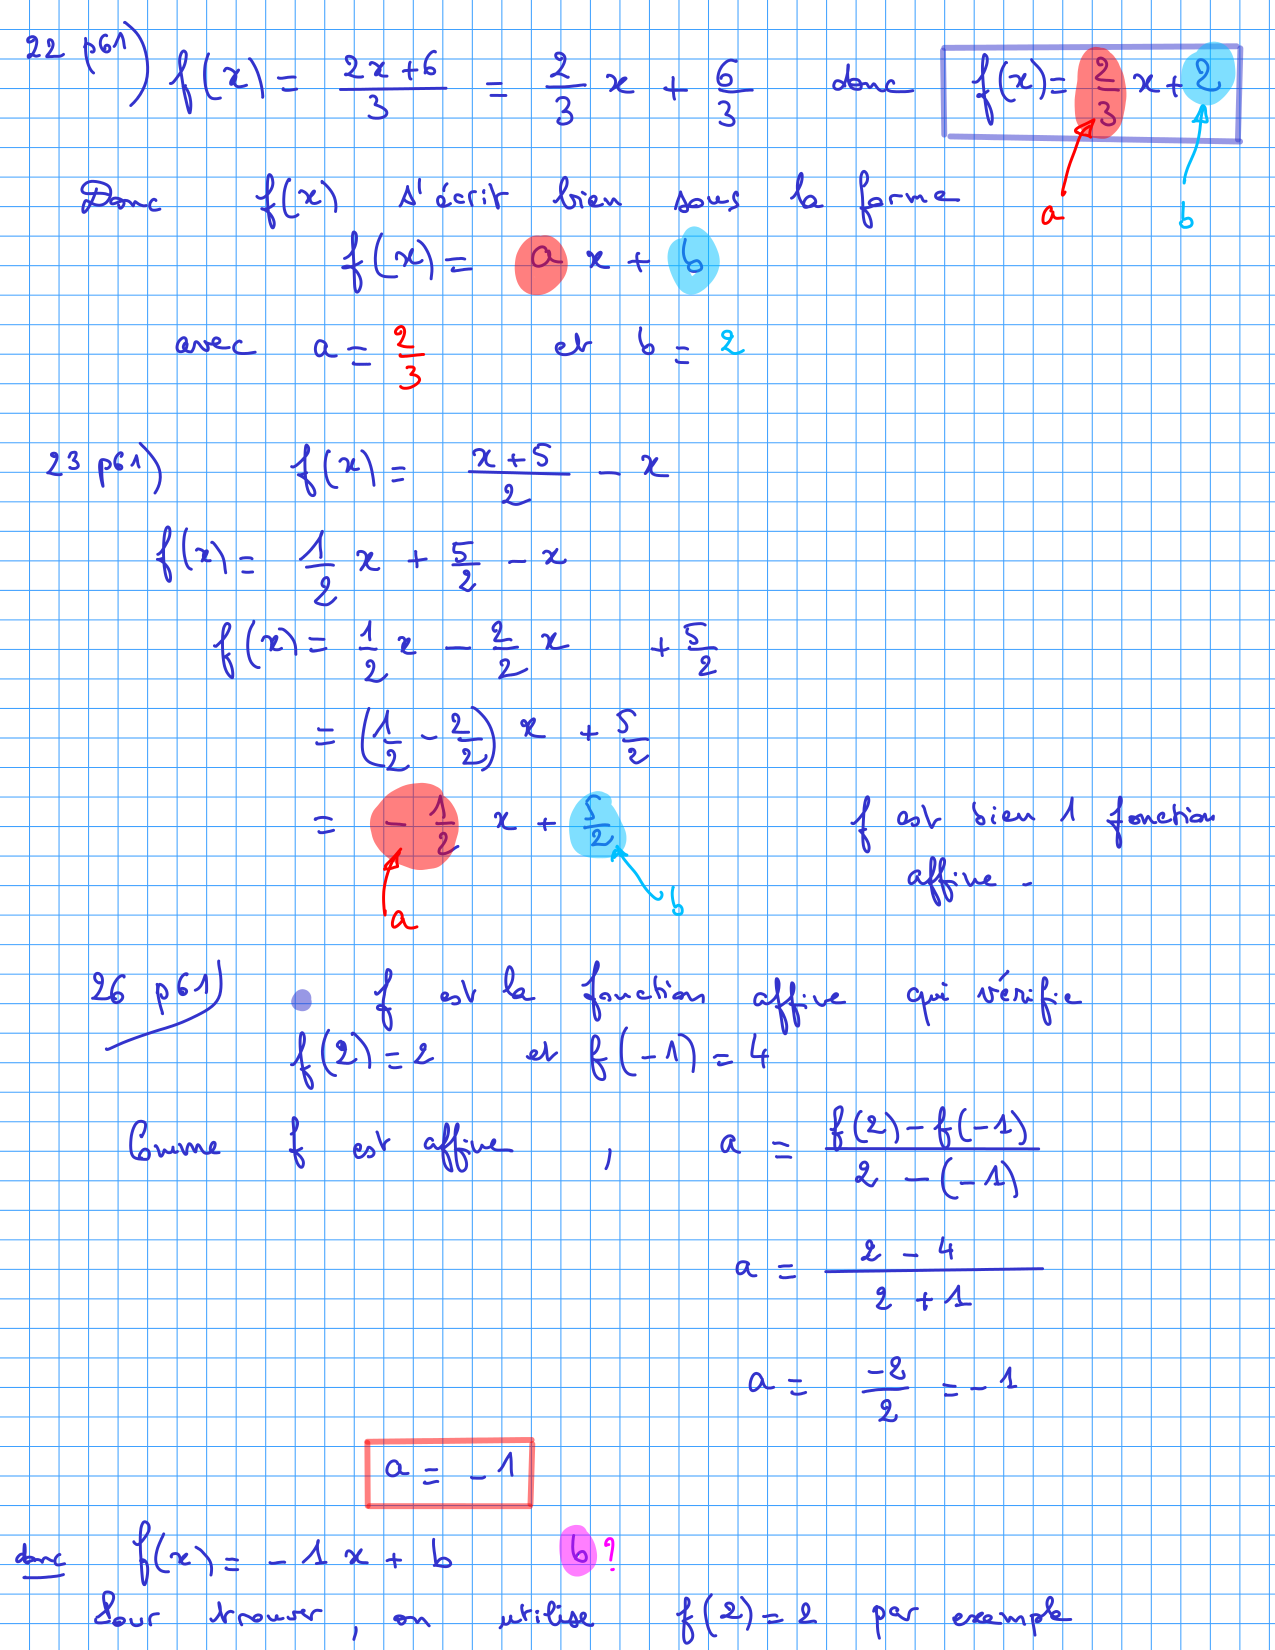 22 p61) f(x) = (2x+6)/3 = 2/3 x + 6/3 donc f(x) = 2/3 x + 2
a b
Donc f(x) s'écrit bien sous la forme
f(x) = a x + b
avec a = 2/3 et b = 2
23 p61) f(x) = (x+5)/2 - x
f(x) = 1/2 x + 5/2 - x
f(x) = 1/2 x - 2/2 x + 5/2
= (1/2 - 2/2) x + 5/2
= - 1/2 x + 5/2 f est bien 1 fonction
affine.
a b
26 p61) f est la fonction affine qui vérifie
f(2) = 2 et f(-1) = 4
Comme f est affine, a = (f(2) - f(-1))/(2 - (-1))
a = (2 - 4)/(2 + 1)
a = -2/2 = -1
a = -1
donc f(x) = -1 x + b b ?
Pour trouver, on utilise f(2) = 2 par exemple